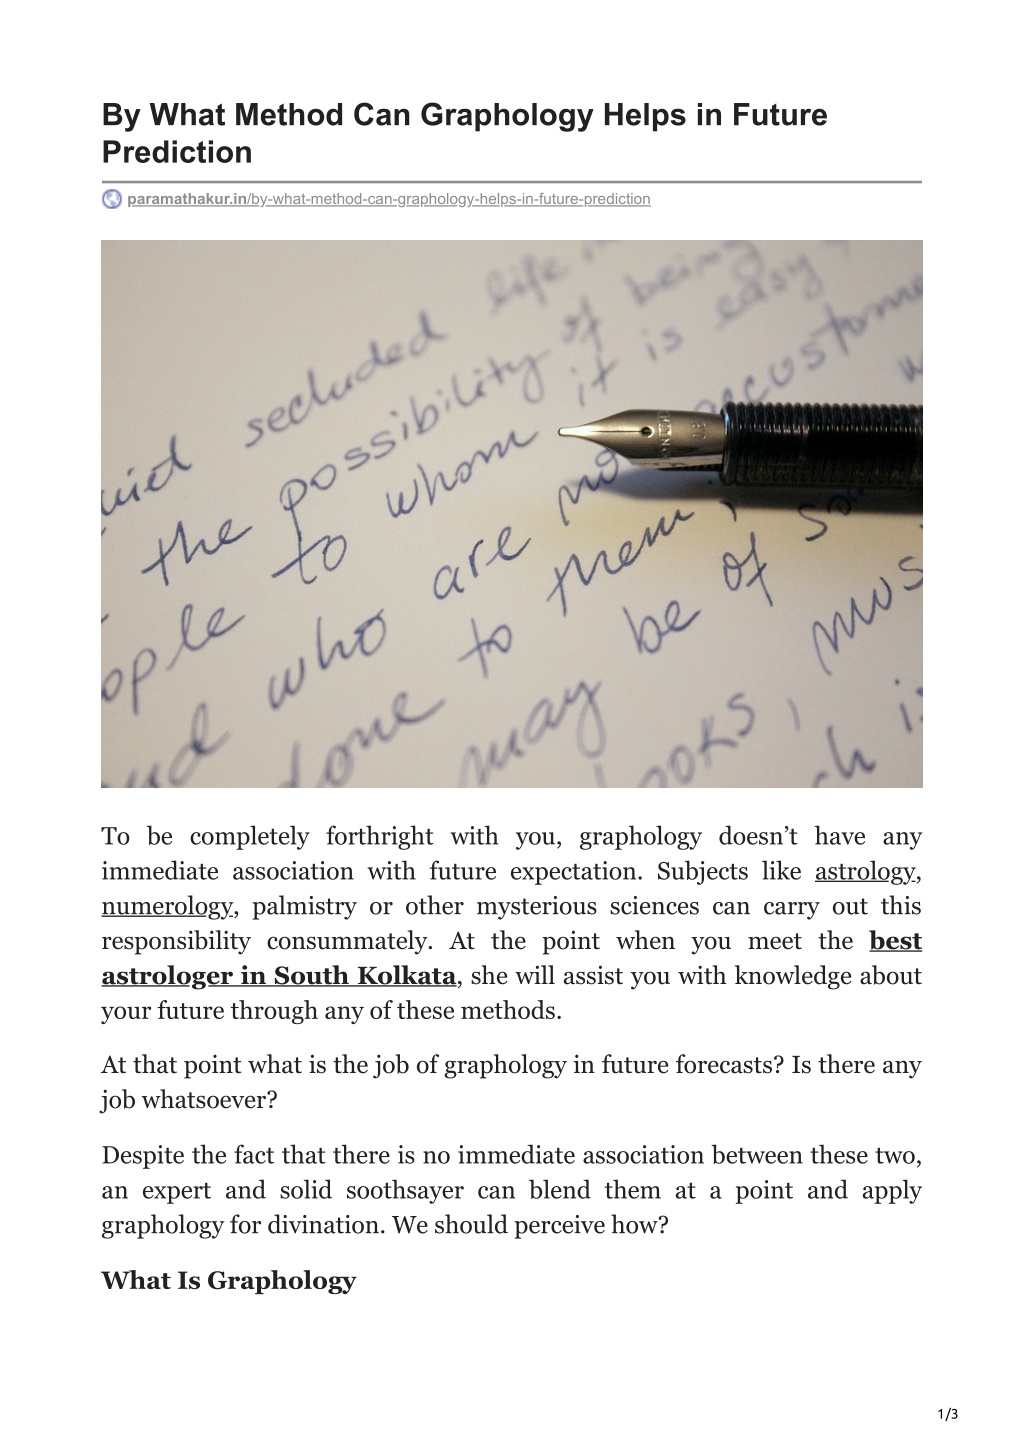 By What Method Can Graphology Helps in Future
Prediction
paramathakur.in/by-what-method-can-graphology-helps-in-future-prediction
secluded life
the possibility of being
to whom it is easy
who are no
to them,
done may be of
To be completely forthright with you, graphology doesn’t have any
immediate association with future expectation. Subjects like astrology,
numerology, palmistry or other mysterious sciences can carry out this
responsibility consummately. At the point when you meet the best
astrologer in South Kolkata, she will assist you with knowledge about
your future through any of these methods.
At that point what is the job of graphology in future forecasts? Is there any
job whatsoever?
Despite the fact that there is no immediate association between these two,
an expert and solid soothsayer can blend them at a point and apply
graphology for divination. We should perceive how?
What Is Graphology
1/3